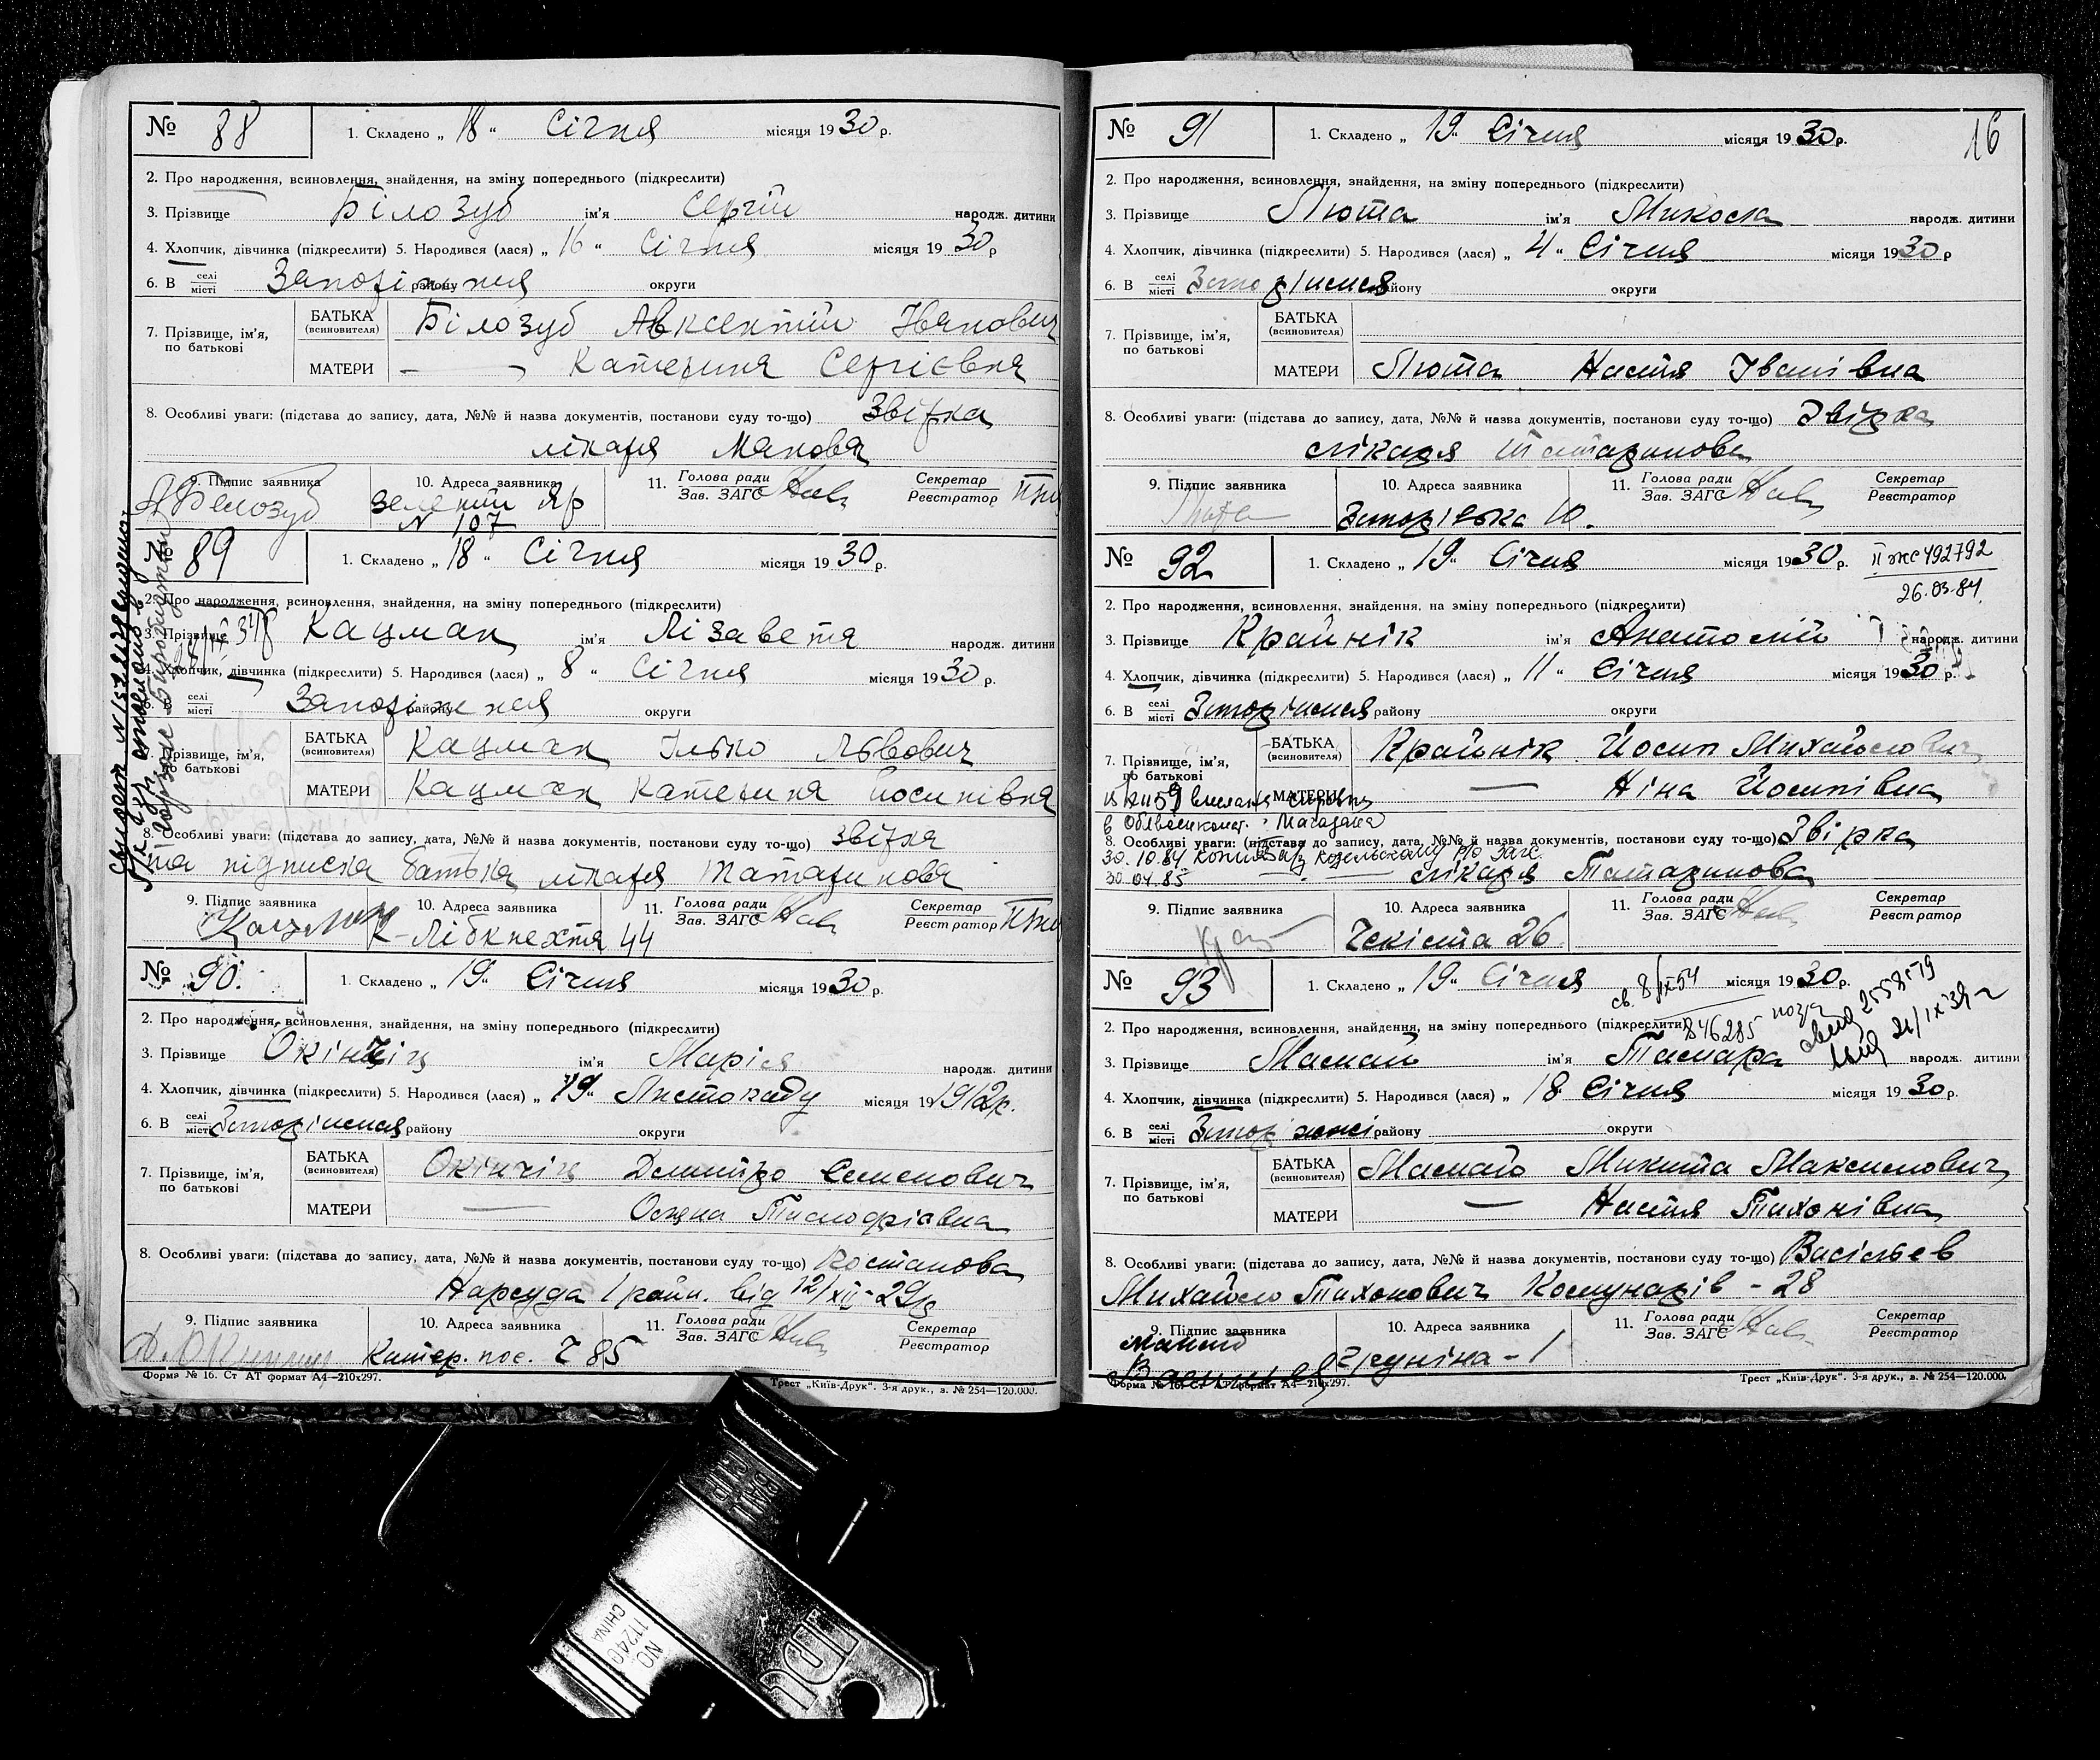 № 88 1. Складено „ 18 “ Січня місяця 1930 р.
2. Про народження, всиновлення, знайдення, на зміну попереднього (підкреслити)
3. Прізвище Білозуб ім'я Сергій народж. дитини
4. Хлопчик, дівчинка (підкреслити) 5. Народився (лася) „ 16 “ Січня місяця 1930 р
6. В селі місті Запоріжжя району округи
7. Прізвище, ім'я, по батькові
БАТЬКА (всиновителя) Білозуб Авксентій Іванович
МАТЕРИ — Катерина Сергієвна
8. Особливі уваги: (підстава до запису, дата, №№ й назва документів, постанови суду то-що) Звідка
лікаря
9. Підпис заявника 10. Адреса заявника 11. Голова ради Зав. ЗАГС Секретар Реєстратор
А Белозуб Зелений Яр
N 107
№ 89 1. Складено „ 18 “ Січня місяця 1930 р.
2. Про народження, всиновлення, знайдення, на зміну попереднього (підкреслити)
3. Прізвище Кацман ім'я Лізавета народж. дитини
4. Хлопчик, дівчинка (підкреслити) 5. Народився (лася) „ 8 “ Січня місяця 1930 р.
6. В селі місті Запоріжжя району округи
7. Прізвище, ім'я, по батькові
БАТЬКА (всиновителя) Кацман Ілько Львович
МАТЕРИ Кацман Катерина Йосипівна
8. Особливі уваги: (підстава до запису, дата, №№ й назва документів, постанови суду то-що) звідка
та підписка батька лікаря Татаринова
9. Підпис заявника 10. Адреса заявника 11. Голова ради Зав. ЗАГС Секретар Реєстратор
Кацман К-Лібкнехта 44
№ 90. 1. Складено „ 19 “ Січня місяця 1930 р.
2. Про народження, всиновлення, знайдення, на зміну попереднього (підкреслити)
3. Прізвище Окінчіц ім'я Марія народж. дитини
4. Хлопчик, дівчинка (підкреслити) 5. Народився (лася) „ 19 “ Листопаду місяця 19 1912 р.
6. В селі місті Запоріжжя району округи
7. Прізвище, ім'я, по батькові
БАТЬКА (всиновителя) Окінчіц Дмитро Семенович
МАТЕРИ — Тимофіївна
8. Особливі уваги: (підстава до запису, дата, №№ й назва документів, постанови суду то-що) Постанова
Нарсуда 1 район. від 12/XII-29 р
9. Підпис заявника 10. Адреса заявника 11. Голова ради Зав. ЗАГС Секретар Реєстратор
Катер. пос. 85
Форма № 16. Ст АТ формат А4—210х297. Трест „Київ-Друк“. 3-я друк., з. № 254—120.000.
16
№ 91 1. Складено „ 19 “ Січня місяця 1930 р.
2. Про народження, всиновлення, знайдення, на зміну попереднього (підкреслити)
3. Прізвище Люта ім'я Микола народж. дитини
4. Хлопчик, дівчинка (підкреслити) 5. Народився (лася) „ 4 “ Січня місяця 1930 р
6. В селі місті Запоріжжя району округи
7. Прізвище, ім'я, по батькові
БАТЬКА (всиновителя)
МАТЕРИ Люта Настя Іванівна
8. Особливі уваги: (підстава до запису, дата, №№ й назва документів, постанови суду то-що) Звідка
лікаря Татаринова
9. Підпис заявника 10. Адреса заявника 11. Голова ради Зав. ЗАГС Секретар Реєстратор
Люта 10.
№ 92 1. Складено „ 19 “ Січня місяця 1930 р. II жс 492792
26.03.84
2. Про народження, всиновлення, знайдення, на зміну попереднього (підкреслити)
3. Прізвище Крайнік ім'я Анатолій народж. дитини
4. Хлопчик, дівчинка (підкреслити) 5. Народився (лася) „ 11 “ Січня місяця 1930 р.
6. В селі місті Запоріжжя району округи
7. Прізвище, ім'я, по батькові
БАТЬКА (всиновителя) Крайнік Йосип Михайлович
МАТЕРИ — Ніна Йосипівна
8. Особливі уваги: (підстава до запису, дата, №№ й назва документів, постанови суду то-що) Звірка
30.10.84 Козельскому р/о Загс
30.04.85 лікаря Татаринова
9. Підпис заявника 10. Адреса заявника 11. Голова ради Зав. ЗАГС Секретар Реєстратор
Край Чекіста 26
№ 93 1. Складено „ 19 “ Січня місяця 1930 р.
св. 8/IX 54
2. Про народження, всиновлення, знайдення, на зміну попереднього (підкреслити)
3. Прізвище Мамай ім'я Тамара народж. дитини
4. Хлопчик, дівчинка (підкреслити) 5. Народився (лася) „ 18 “ Січня місяця 1930 р.
6. В селі місті району округи
7. Прізвище, ім'я, по батькові
БАТЬКА (всиновителя) Микита Максимович
МАТЕРИ — Настя Тихонівна
8. Особливі уваги: (підстава до запису, дата, №№ й назва документів, постанови суду то-що) Васільєв
Михайло Тихонович Комунарів - 28
9. Підпис заявника 10. Адреса заявника 11. Голова ради Зав. ЗАГС Секретар Реєстратор
Форма № 16. Ст АТ формат А4—210х297. Трест „Київ-Друк“. 3-я друк., з. № 254—120.000.
BALL CLIP
NO 11240
CHINA